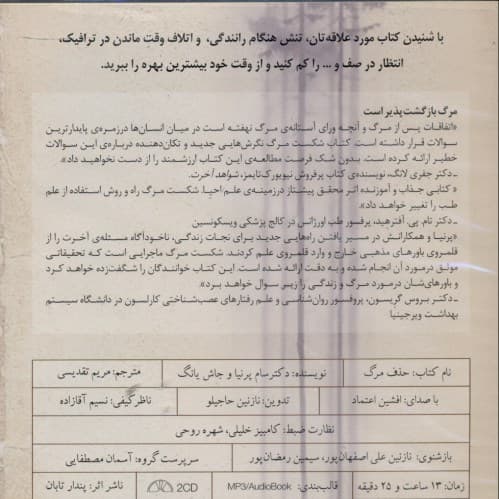 با شنیدن کتاب مورد علاقه‌تان، تنش هنگام رانندگی، و اتلاف وقت ماندن در ترافیک،
انتظار در صف و ... را کم کنید و از وقت خود بیشترین بهره را ببرید.
مرگ بازگشت‌پذیر است
«اتفاقات پس از مرگ و آنچه ورای آستانه‌ی مرگ نهفته است در میان انسان‌ها درزمره‌ی پایدارترین
سوالات قرار داشته است. کتاب شکست مرگ نگرش‌هایی جدید و تکان‌دهنده درباره‌ی این سوالات
خطیر ارائه کرده است. بدون شک فرصت مطالعه‌ی این کتاب ارزشمند را از دست نخواهید داد».
ـ دکتر جفری لانگ، نویسنده‌ی کتاب پرفروش نیویورک‌تایمز، شواهد آخرت.
« کتابی جذاب و آموزنده اثر محقق پیشتاز درزمینه‌ی علم احیا. شکست مرگ راه و روش استفاده از علم
طب را تغییر خواهد داد».
ـ دکتر تام پی. آفترهید، پرفسور طب اورژانس در کالج پزشکی ویسکونسین
«پرنیا و همکارانش در مسیر یافتن راه‌هایی جدید برای نجات زندگی، ناخودآگاه مسئله‌ی آخرت را از
قلمروی باورهای مذهبی خارج و وارد قلمروی علم کردند. شکست مرگ ماجرایی است که تحقیقاتی
موثق درمورد آن انجام شده و به دقت ارائه شده است. این کتاب خوانندگان را شگفت‌زده خواهد کرد
و باورهای‌شان درمورد مرگ و زندگی را زیر سوال خواهد برد».
ـ دکتر بروس گریسون، پروفسور روان‌شناسی و علم رفتارهای عصب‌شناختی کارلسون در دانشگاه سیستم
بهداشت ویرجینیا
نام کتاب: حذف مرگ نویسنده: دکتر سام پرنیا و جاش یانگ مترجم: مریم تقدیسی
با صدای: افشین اعتماد تدوین: نازنین حاجیلو ناظر کیفی: نسیم آقازاده
نظارت ضبط: کامبیز خلیلی، شهره روحی
بازشنوی: نازنین علی اصفهان‌پور، سیمین رمضان‌پور سرپرست گروه: آسمان مصطفایی
زمان: ۱۳ ساعت و ۲۵ دقیقه قالب‌بندی: MP3/AudioBook 2CD ناشر اثر: پندار تابان